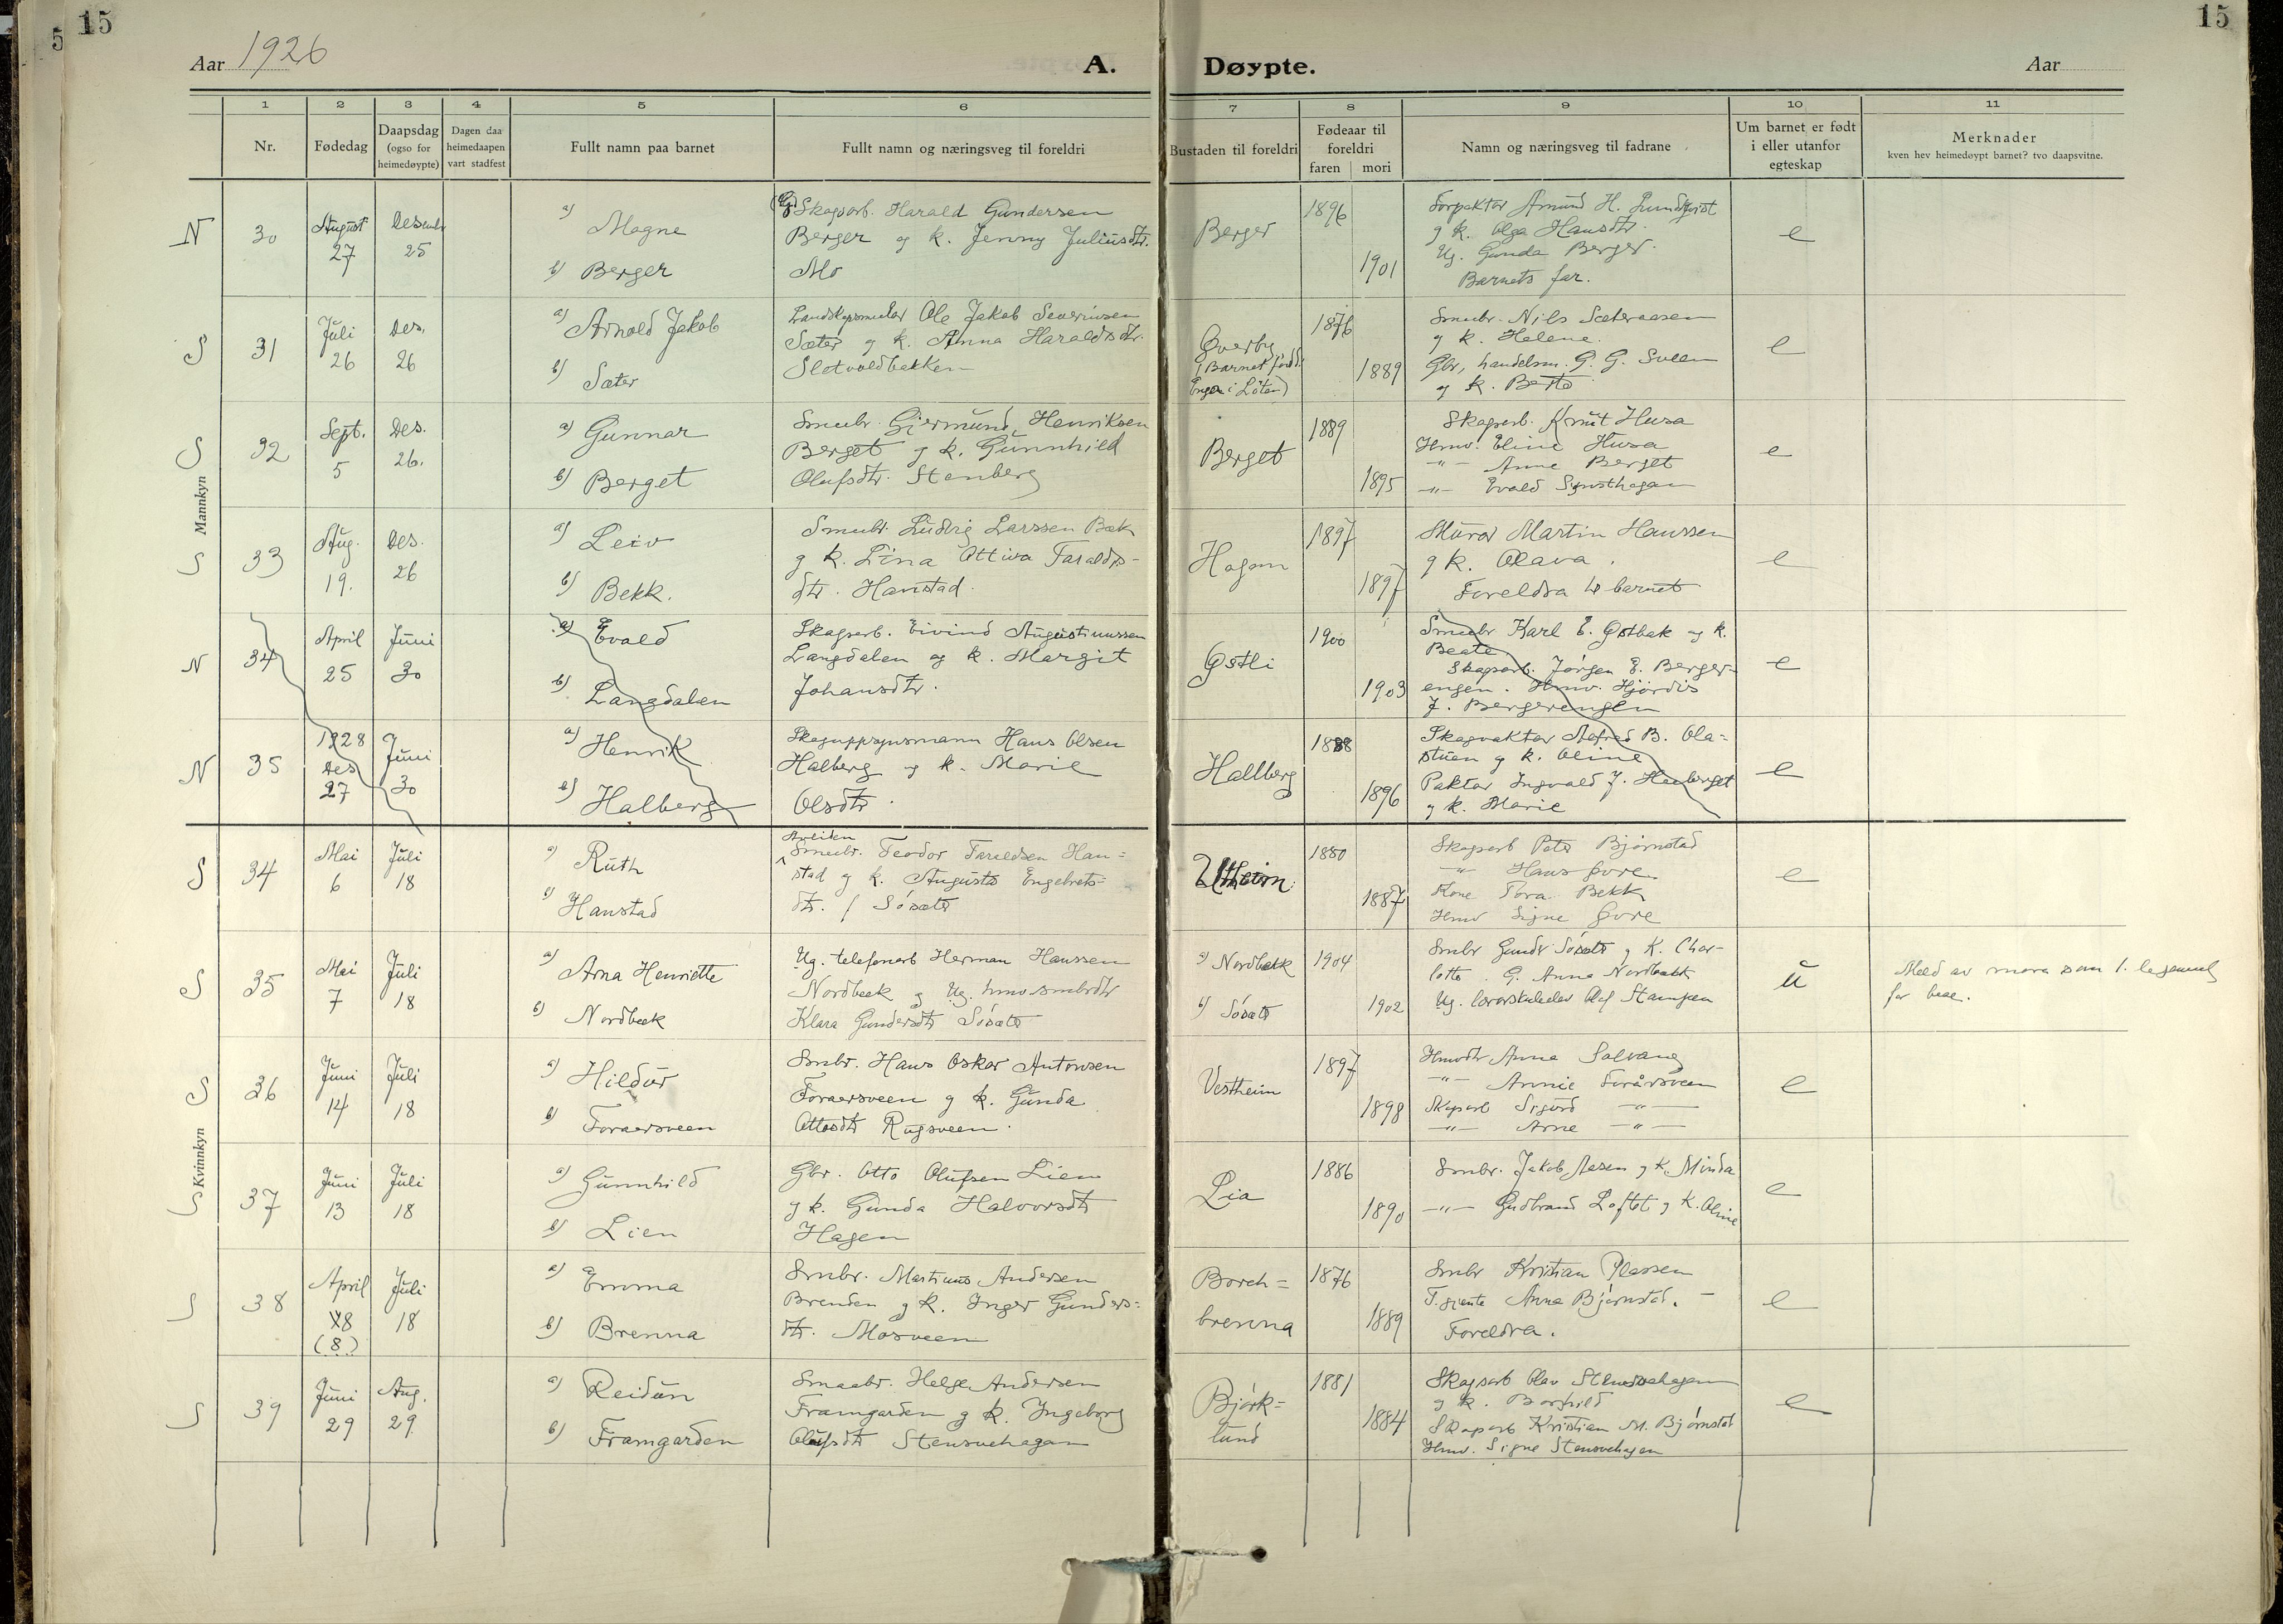 5 15
15
Aar 1926
A.
Døypte.
Aar
1 2 3 4 5 6 7 8 9 10 11
Nr.
Fødedag
Daapsdag
(ogso for
heimedøypte)
Dagen daa
heimedaapen
vart stadfest
Fullt namn paa barnet
Fullt namn og næringsveg til foreldri
Bustaden til foreldri
Fødeaar til
foreldri
faren mori
Namn og næringsveg til fadrane
Um barnet er født
i eller utanfor
egteskap
Merknader
kven hev heimedøypt barnet? tvo daapsvitne.
Mannkyn
N 30
August
27
Desemb
25
a) Magne
b) Berger
Skogsarb. Harald Gundersen
Berger og k. Jenny Juliusdtr.
Mo
Berger
1896
1901
Forpaktar Amund H. Lundkvist
og k. Olga Hansdtr.
Ug. Gunda Berger.
Barnets far.
e
S 31
Juli
26
Des.
26
a) Arnold Jakob
b) Sæter
Ole Jakob Severinsen
Sæter og k. Anna Haraldsdtr.
Slotvoldbakken
Øverby
(Barnet född
i Löten)
1876
1889
Smubr. Nils Sæteraasen
og k. Helene.
Gbr, handelsm. G. G. Sveen
og k. Berta
e
S 32
Sept.
5
Des.
26.
a) Gunnar
b) Berget
Smubr. Gjermund Henriksen
Berget og k. Gunnhild
Olufsdtr. Stenberg
Berget
1889
1895
Skogsarb. Knut Husa
Hmv. Eline Husa
-"- Anne Berget
-"- Evald
e
S 33
Aug.
19.
Des.
26
a) Leiv
b) Bekk.
Smubr. Ludvig Larssen Bæk
og k. Lina Ottiva Taralds-
dtr. Hanstad.
Hagen
1897
1897
Murar Martin Hanssen
og k. Olava.
Foreldra t. barnet
e
N 34
April
25
Juni
30
a) Evald
b) Langdalen
Skogsarb. Eivind Augustinussen
Langdalen og k. Margit
Johansdtr.
Østli
1900
1903
Smubr Karl E. Østbak og k.
Beate
Skogsarb. Jørgen E. Berger-
engen. Hmv. Hjördis
J. Bergerengen
e
N 35
1928
Des
27
Juni
30
a) Henrik
b) Halberg
Skoguppsynsmann Hans Olsen
Halberg og k. Marie
Olsdtr.
Hallberg
1888
1896
Skogvaktar Alfred B. Ola-
stuen og k. Oline
Paktar Ingvald J. Heeberget
og k. Marie
e
Kvinnkyn
S 34
Mai
6
Juli
18
a) Ruth
b) Hanstad
Arbeidar
Smubr. Teodor Taraldsen Han-
stad og k. Augusta Engebrets-
dtr. Sösæter
Utheim
1880
1887
Skogsarb Peter Bjørnstad
-"- Hans Øvre
Kone Tora Bekk
Hmv Signe Øvre
e
S 35
Mai
7
Juli
18
a) Arna Henriette
b) Nordbæk
Ug. telefonarb Herman Hanssen
Nordbæk og Ug. hmv smbrdtr
Klara Gundersdtr Sösæter
a) Nordbækk
b) Sösæter
1904
1902
Smbr Gundr Sösæter og K. Char-
lotte. G. Anna Nordbækk
Ug. lærarskuleelev Olaf Stampen
u
Meld av mora som 1.
for
S 36
Juni
14
Juli
18
a) Hildur
b) Foraersveen
Smbr. Hans Oskar Antonsen
Foraersveen og k. Gunda
Ottosdtr Rugsveen.
Vestheim
1897
1898
Hmvdtr Anna Solvang
-"- Annie Forårsveen
Skogsarb Sigurd -"-
-"- Arne -"-
e
S 37
Juni
13
Juli
18
a) Gunnhild
b) Lien
Gbr. Otto Olufsen Lien
og k. Gunda Halvorsdtr
Hagen
Lia
1886
1890
Smbr. Jakob Aasen og k. Minda
-"- Gudbrand Loftet og k. Oline
e
S 38
April
18
(8)
Juli
18
a) Emma
b) Brenna
Smbr. Martinus Andersen
Brenden og k. Inger Gunders-
dtr. Mosveen
Borch-
brenna
1876
1889
Smbr Kristian Plassen
T.gjente Anna Bjørnstad.
Foreldra.
e
S 39
Juni
29
Aug.
29
a) Reidun
b) Framgarden
Smaabr. Helge Andersen
Framgarden og k. Ingeborg
Olufsdtr Stensvehagen
Björk-
lund
1881
1884
Skogsarb Olav Stensvehagen
og k. Borghild
Skogsarb Kristian M. Bjørnstad
Hmv. Signe Stensvehagen
e